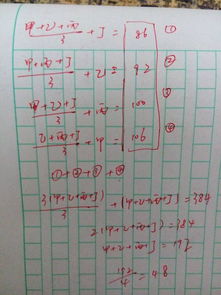 (甲+乙+丙)/3 + 丁 = 86 ①
(甲+丙+丁)/3 + 乙 = 92 ②
(甲+乙+丁)/3 + 丙 = 100 ③
(乙+丙+丁)/3 + 甲 = 106 ④
①+②+③+④
3(甲+乙+丙+丁)/3 + (甲+乙+丙+丁) = 384
2(甲+乙+丙+丁) = 384
甲+乙+丙+丁 = 192
192/4 = 48